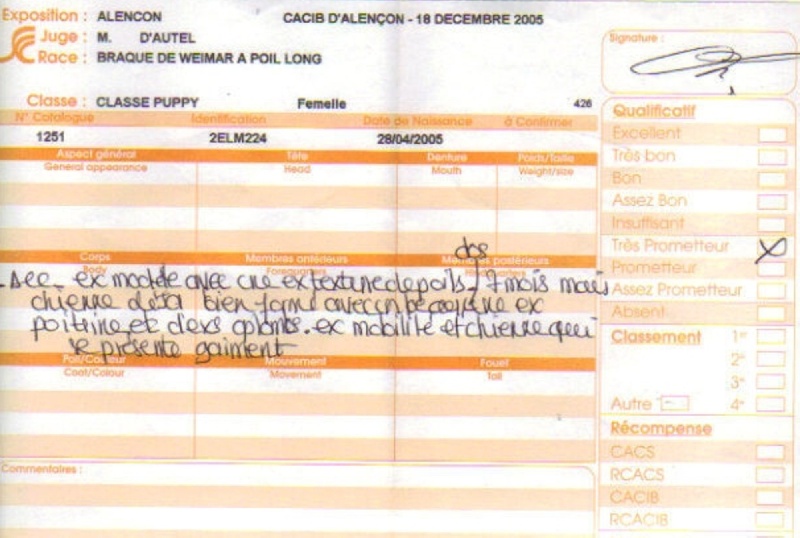 Exposition : ALENCON CACIB D'ALENÇON - 18 DECEMBRE 2005
Juge : M. D'AUTEL
Race : BRAQUE DE WEIMAR A POIL LONG
Signature :
Classe : CLASSE PUPPY Femelle 426
N° Catalogue Identification Date de Naissance à Confirmer
1251 2ELM224 28/04/2005
Aspect général Tête Denture Poids/Taille
General appearance Head Mouth Weight/size
Corps Membres antérieurs Membres postérieurs
Body Forequarters
dos
ex modèle avec une ex texture de poils. 7 mois mais
chienne déjà bien formé avec un beau ex
poitrine et d'exs aplombs. ex mobilité et chienne qui
se présente gaiment
Poil/Couleur Mouvement Fouet
Coat/Colour Movement Tail
Commentaires :
Qualificatif
Excellent
Très bon
Bon
Assez Bon
Insuffisant
Très Prometteur X
Prometteur
Assez Prometteur
Absent
Classement 1er
2e
3e
Autre 4e
Récompense
CACS
RCACS
CACIB
RCACIB